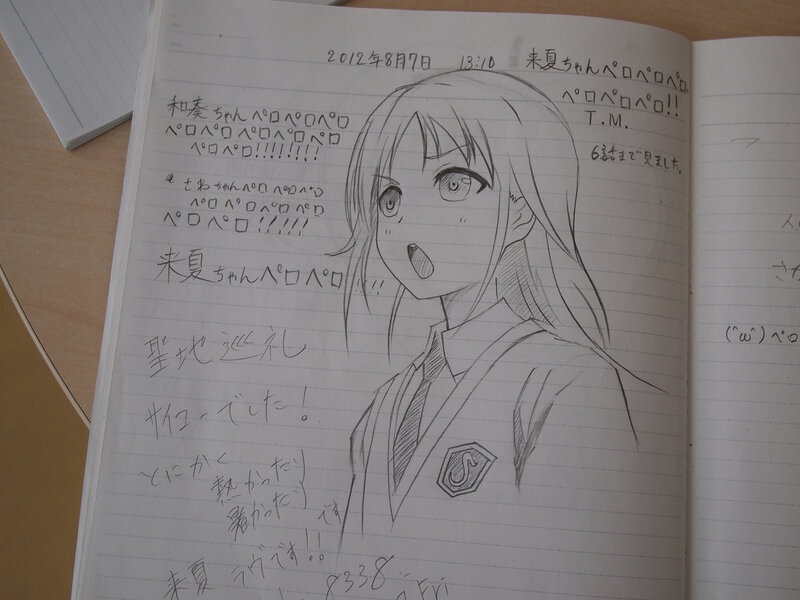 2012年8月7日 13:10
来夏ちゃんペロペロペロ、
ペロペロペロ!!
T.M.
6話まで見ました。
和奏ちゃんペロペロペロ
ペロペロペロペロペロ
ペロペロ!!!!!!!!
さわちゃんペロペロペロ
ペロペロペロペロ
ペロペロ!!!!!
来夏ちゃんペロペロ!!!
聖地巡礼
サイコーでした!
とにかく
熱かったり
暑かったり
です
来夏 ラヴです!!
8338
S
(^ω^)ペロ